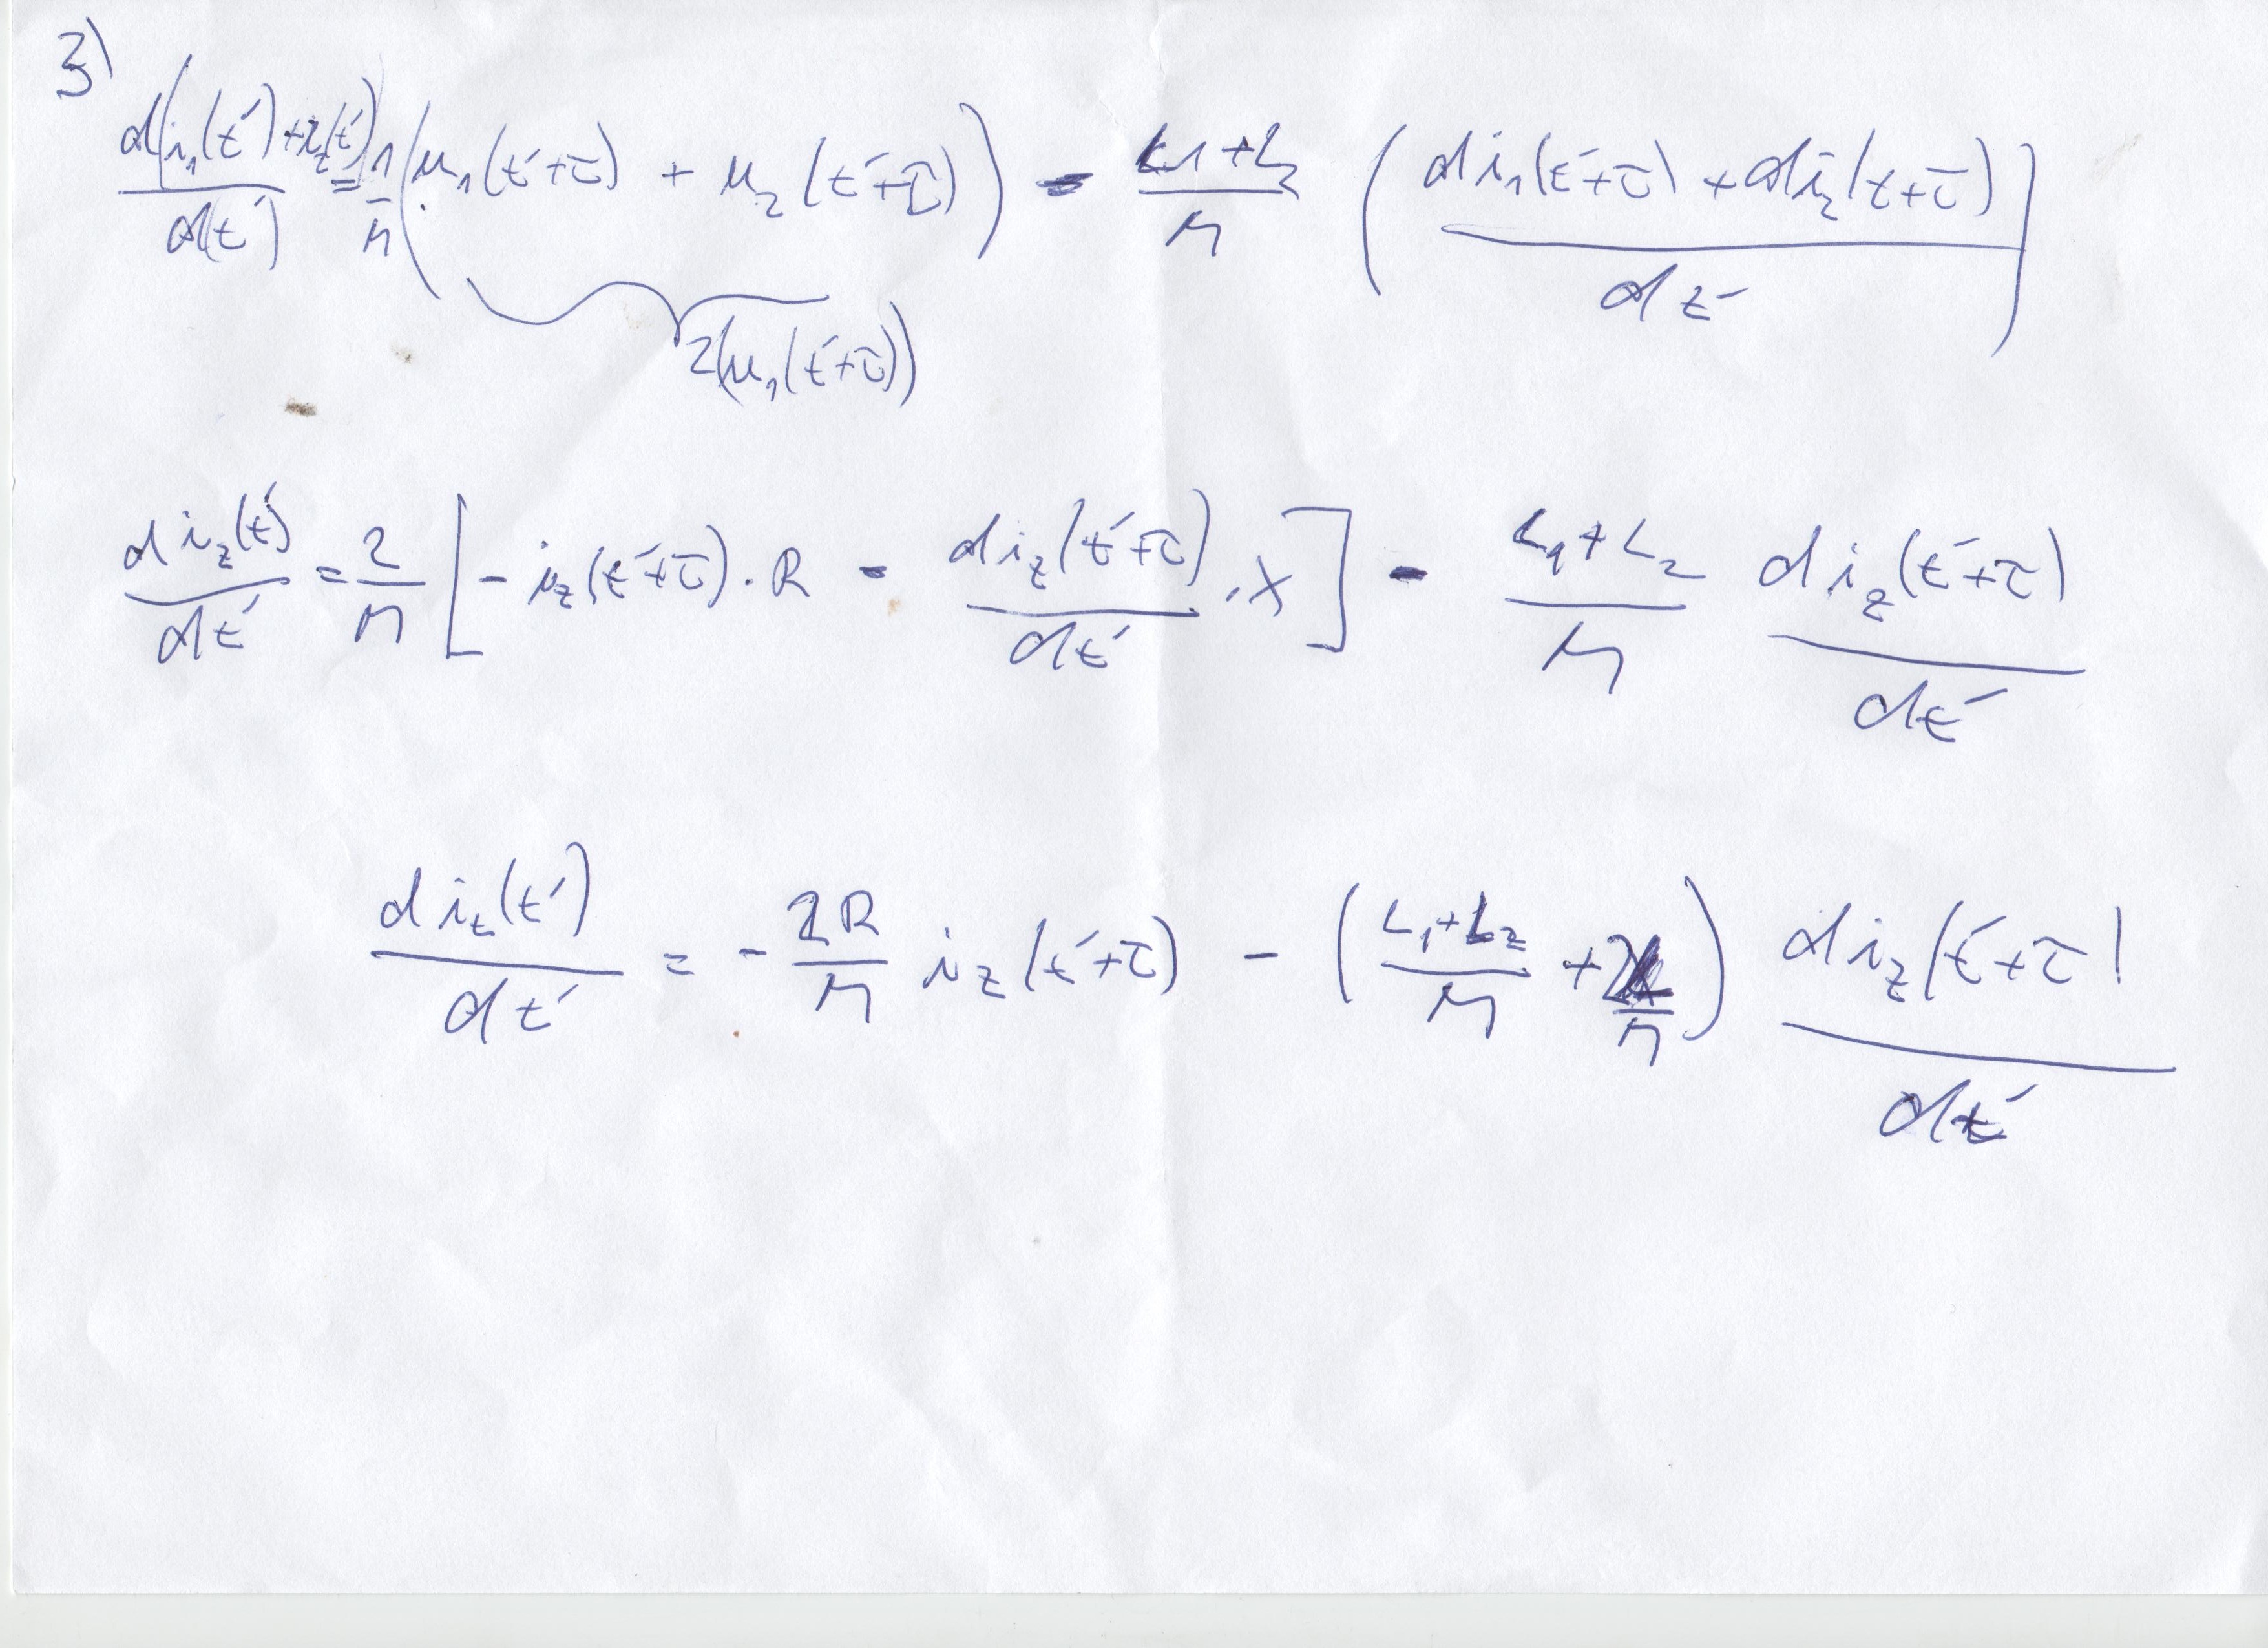 3)
d(i₁(t′) + i₂(t′)) / d(t′) = 1/M (u₁(t′+τ) + u₂(t′+τ)) - (L1+L2)/M ( (di₁(t′+τ) + di₂(t+τ)) / dt′ )
2(u₁(t′+τ))
d i_z(t′) / dt′ = 2/M [ - i_z(t′+τ) · R - d i_z(t′+τ) / dt′ · X ] - (L₁+L₂)/M d i_z(t′+τ) / dt′
d i_z(t′) / dt′ = - 2R/M i_z(t′+τ) - ( (L₁+L₂)/M + 2X/M ) d i_z(t′+τ) / dt′